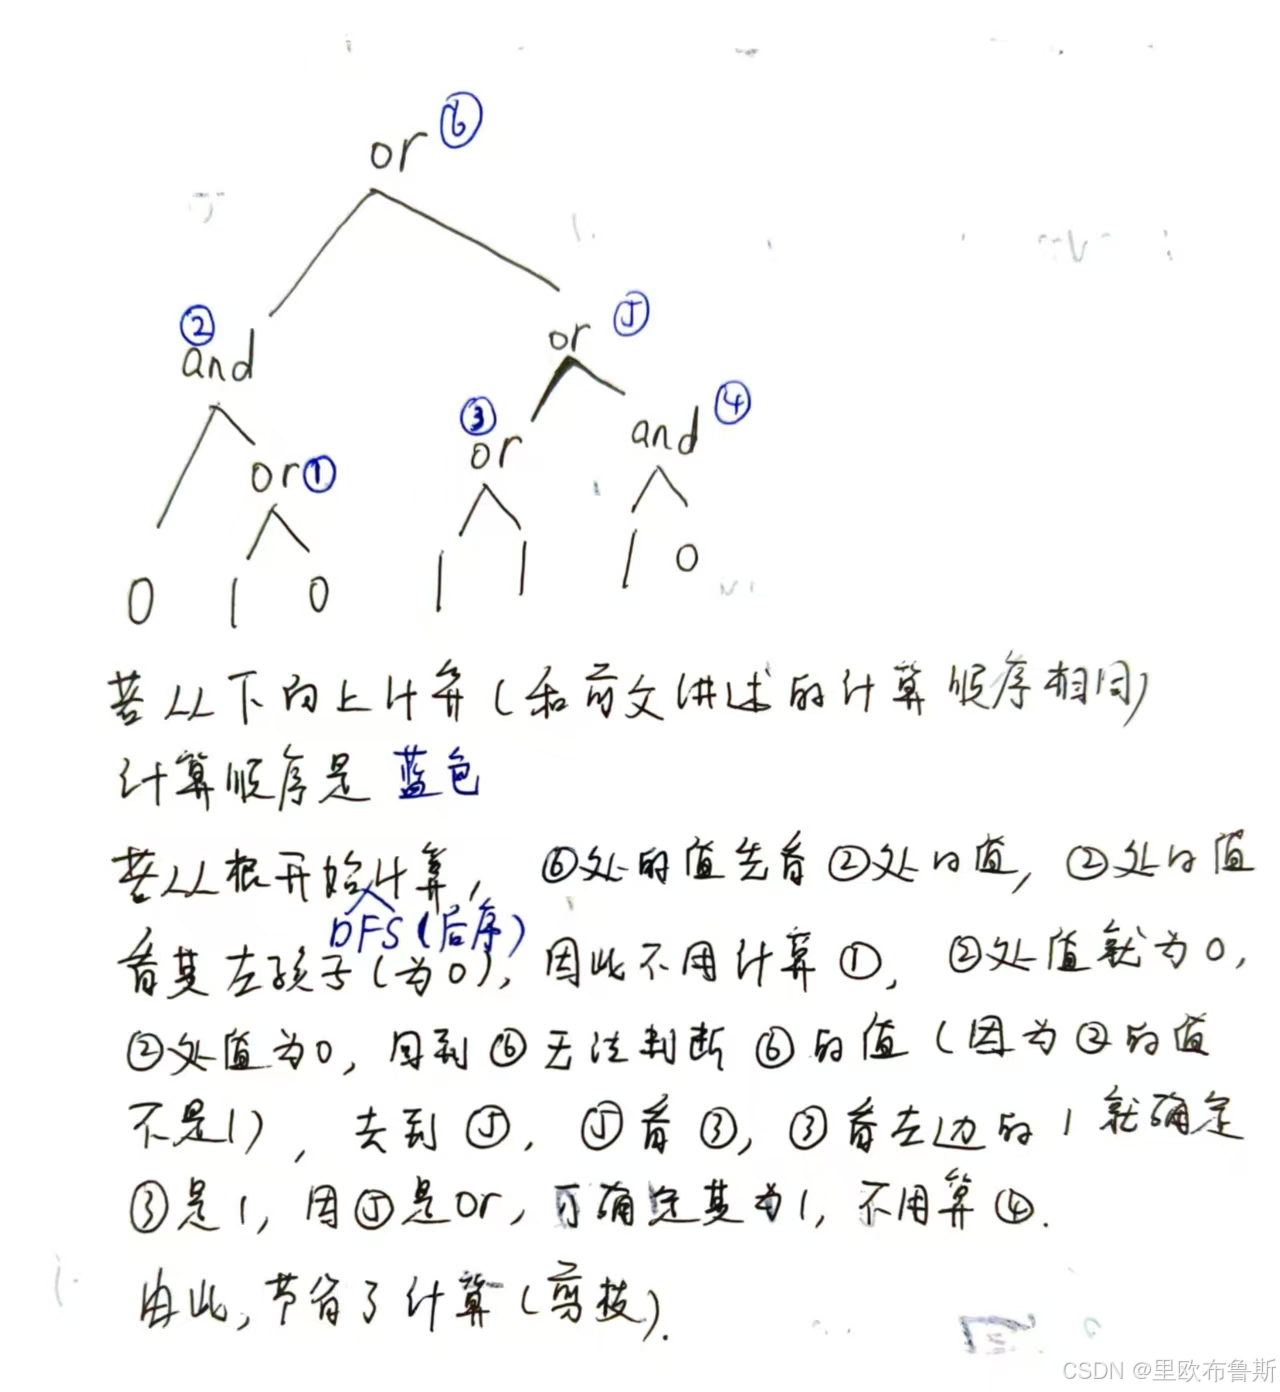 or ⑥
② and
or ⑤
③ or
and ④
or ①
0 1 0 1 1 1 0
若从下向上计算(和前文讲述的计算顺序相同)
计算顺序是 蓝色
若从根开始计算, ⑥处的值先看②处的值, ②处的值
DFS(后序)
看其左孩子(为0), 因此不用计算①, ②处值就为0,
②处值为0, 回到⑥无法判断⑥的值(因为②的值
不是1), 去到⑤, ⑤看③, ③看左边的1就确定
③是1, 因⑤是or, 可确定其为1, 不用算④.
由此, 节省了计算(剪枝).
CSDN @里欧布鲁斯